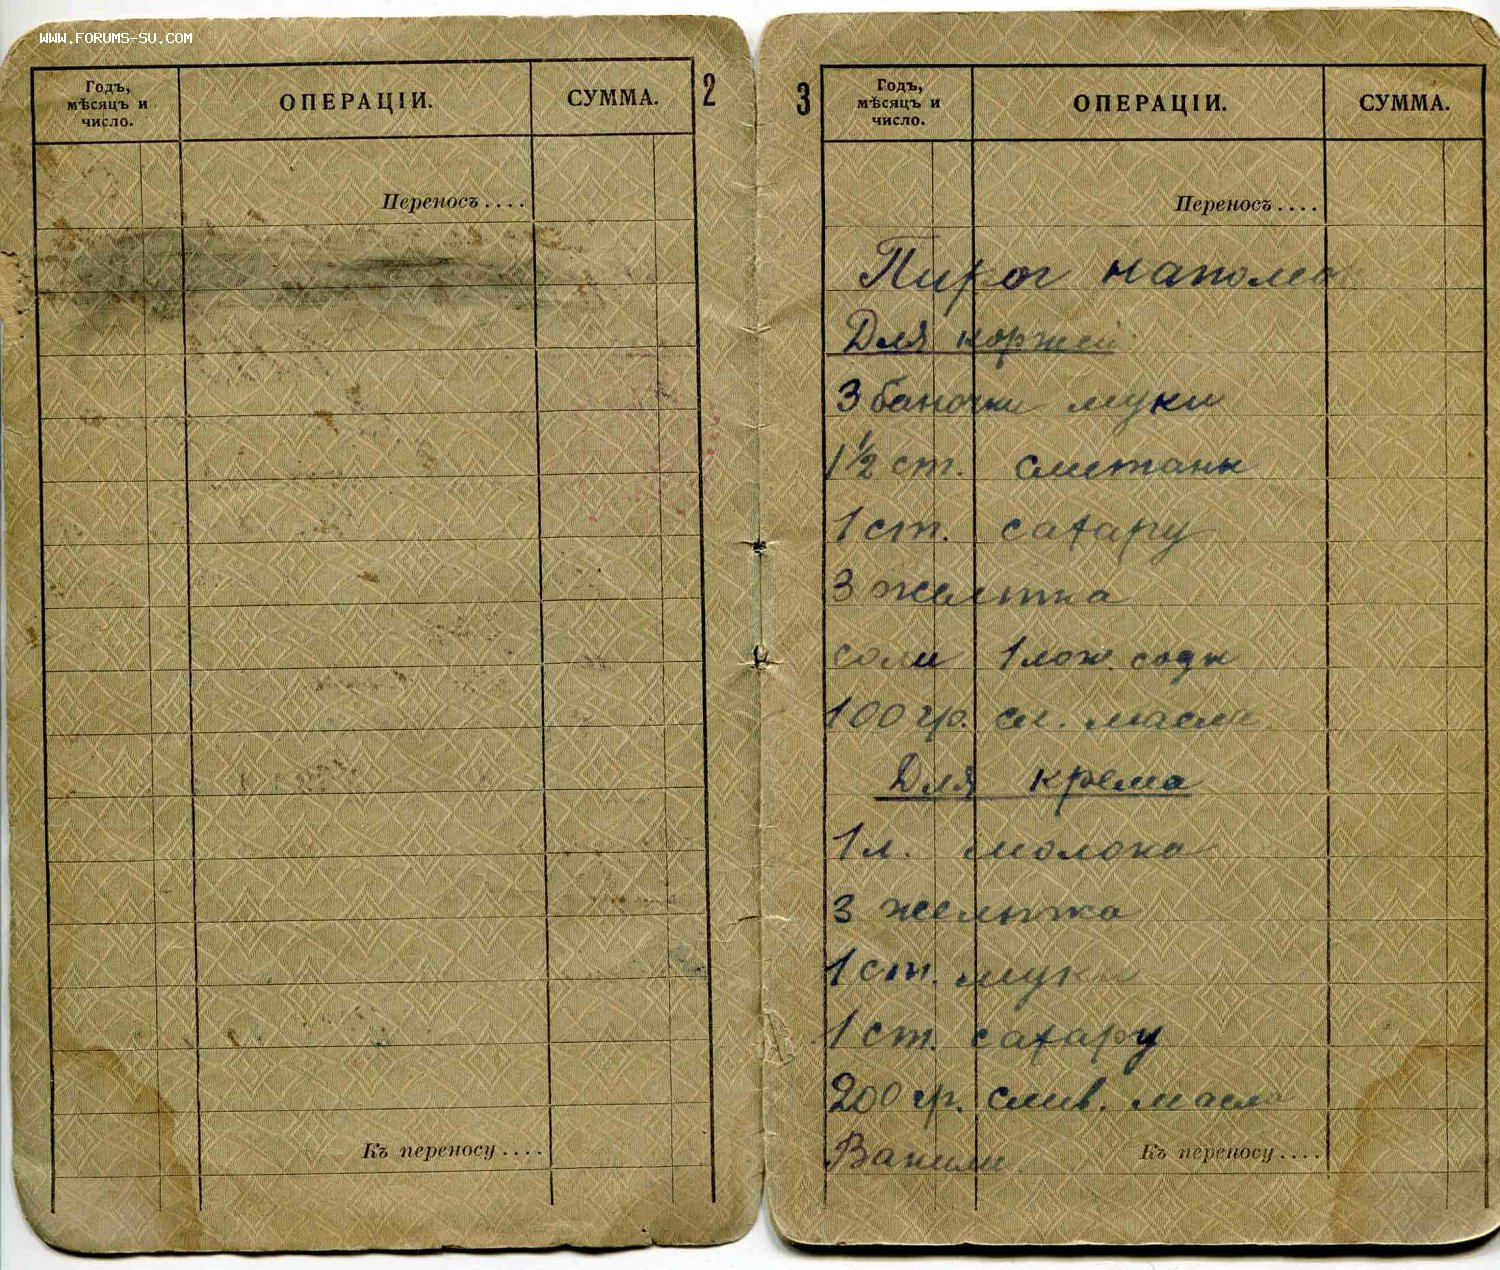 WWW.FORUMS-SU.COM
Годъ,
мѣсяцъ и
число.
ОПЕРАЦІИ.
СУММА.
2
Переносъ....
Къ переносу....
3
Годъ,
мѣсяцъ и
число.
ОПЕРАЦІИ.
СУММА.
Переносъ....
Пирог наполеон
Для коржей
3 баночки муки
1 1/2 ст. сметаны
1 ст. сахару
3 желтка
соли 1 лож. соды
100 гр. сл. масла
Для крема
1 л. молока
3 желтка
1 ст. муки
1 ст. сахару
200 гр. слив. масла
Ванили.
Къ переносу....